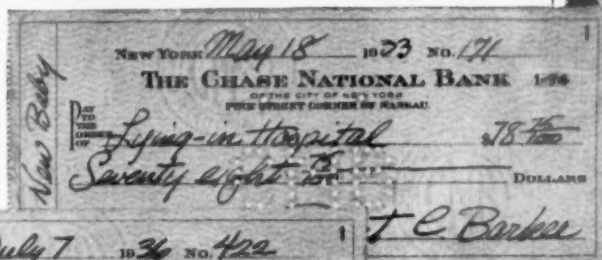 New York May 18 1923 No. 171
The Chase National Bank 1-74
OF THE CITY OF NEW YORK
PINE STREET CORNER OF NASSAU
New Baby
PAY TO THE ORDER OF Lying-in Hospital $78 75/100
Seventy eight 75/100 DOLLARS
C. Barker
July 7 1936 No. 422